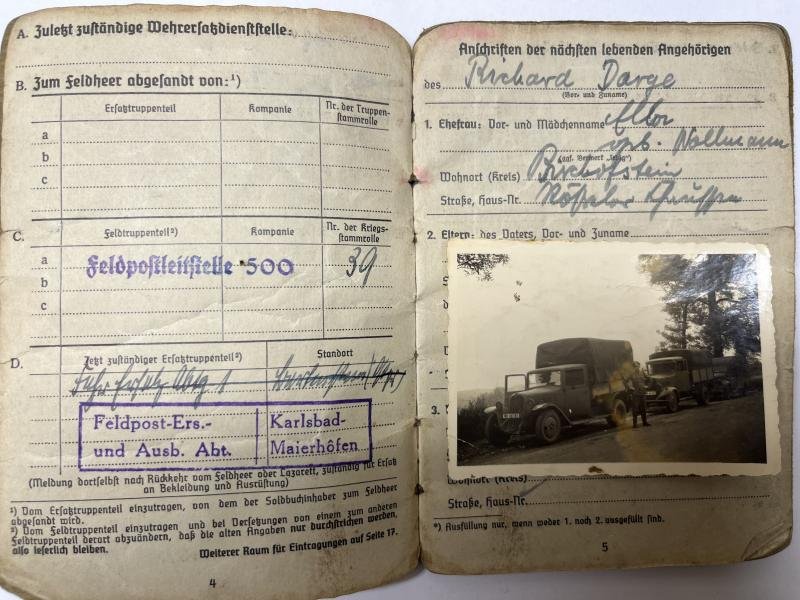 A. Zuletzt zuständige Wehrersatzdienststelle:
B. Zum Feldheer abgesandt von:¹)
Ersatztruppenteil
Kompanie
Nr. der Truppen-
stammrolle
a
b
c
C.
Feldtruppenteil²)
Kompanie
Nr. der Kriegs-
stammrolle
a
Feldpostleitstelle 500
39
b
c
D.
Jetzt zuständiger Ersatztruppenteil²)
Standort
Fahr Ersatz Abtg 1
Feldpost-Ers.-
und Ausb. Abt.
Karlsbad-
Maierhöfen
(Meldung dortselbst nach Rückkehr vom Feldheer oder Lazarett, zuständig für Ersatz
an Bekleidung und Ausrüstung)
¹) Vom Ersatztruppenteil einzutragen, von dem der Soldbuchinhaber zum Feldheer
abgesandt wird.
²) Vom Feldtruppenteil einzutragen und bei Versetzungen von einem zum anderen
Feldtruppenteil derart abzuändern, daß die alten Angaben nur durchstrichen werden,
also leserlich bleiben.
Weiterer Raum für Eintragungen auf Seite 17.
4
Anschriften der nächsten lebenden Angehörigen
des Richard Darge
(Vor- und Zuname)
1. Ehefrau: Vor- und Mädchenname
geb. Nallmann
(ggf. Vermerk „ledig")
Wohnort (Kreis) Bischofstein
Straße, Haus-Nr. Rößeler
2. Eltern: des Vaters, Vor- und Zuname
3.
Wohnort (Kreis)
Straße, Haus-Nr.
*) Ausfüllung nur, wenn weder 1. noch 2. ausgefüllt sind.
5